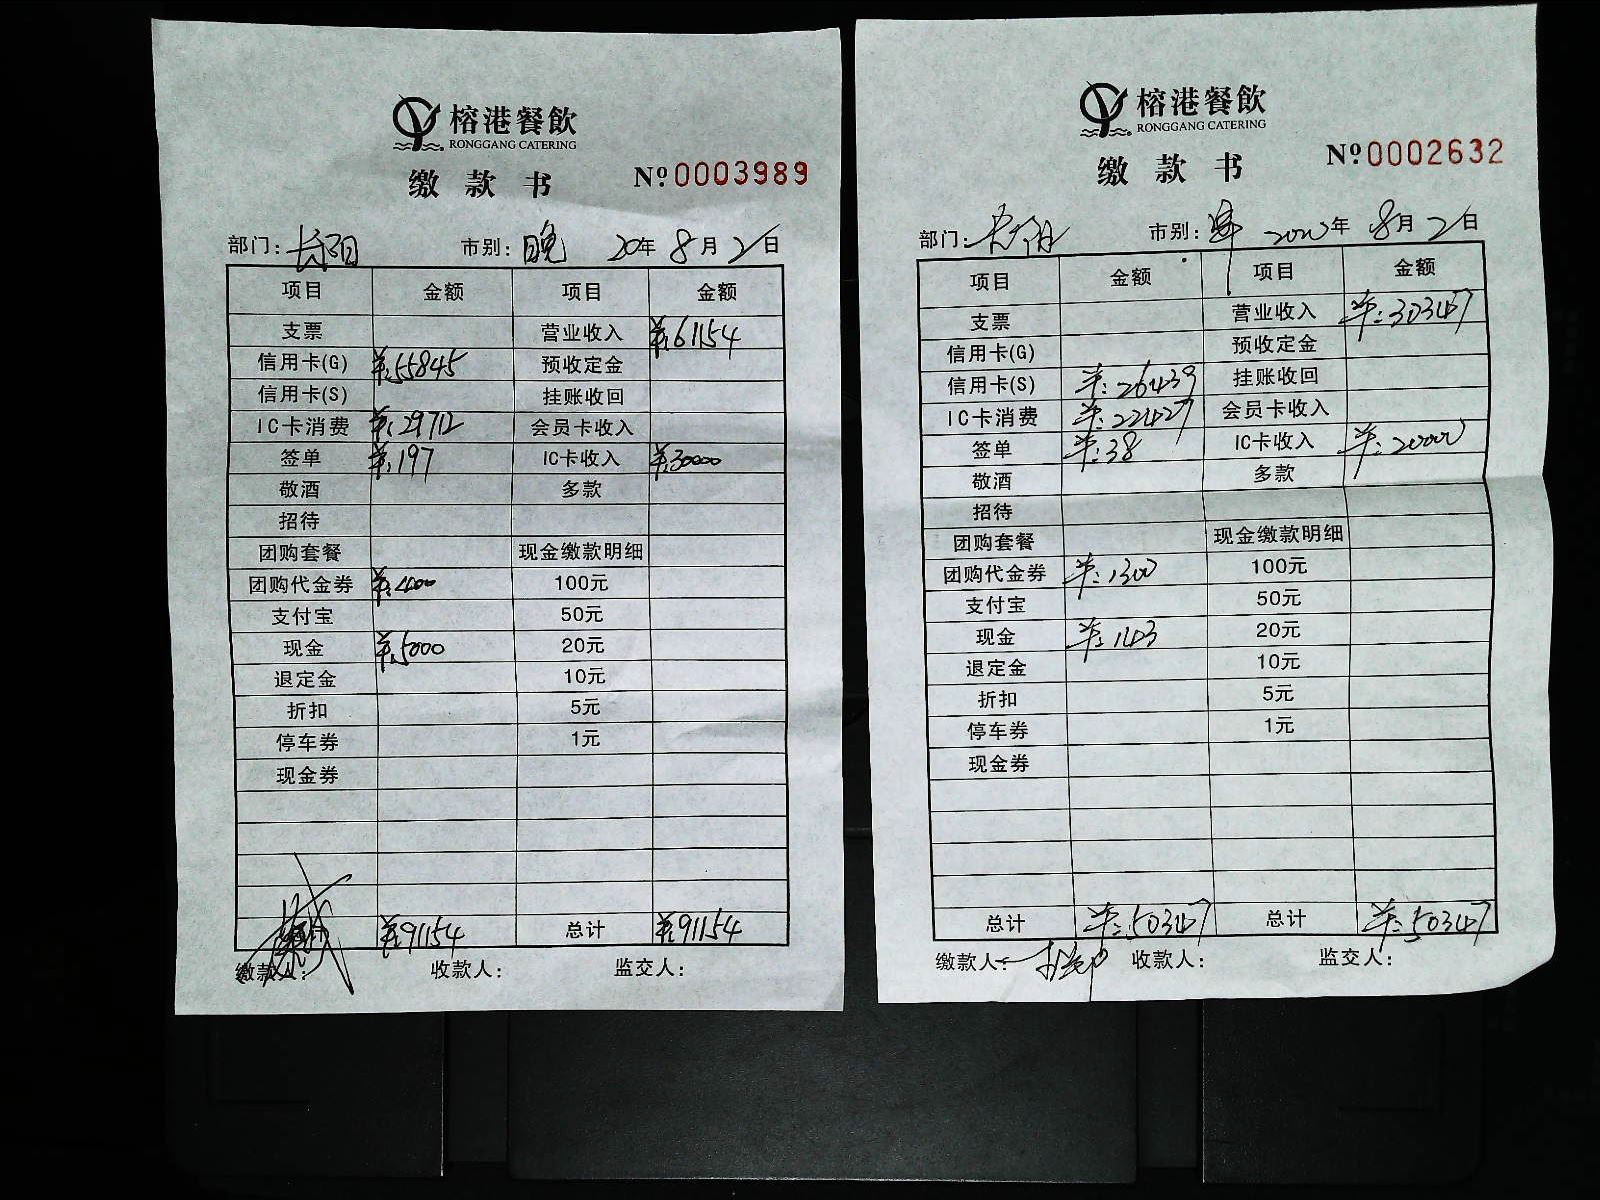 榕港餐飲
RONGGANG CATERING
缴款书 №0003989
部门：长阳 市别：晚 20年 8月 21日
项目 金额 项目 金额
支票 营业收入 ¥：61154
信用卡(G) ¥：55845 预收定金
信用卡(S) 挂账收回
IC卡消费 ¥：29712 会员卡收入
签单 ¥：197 IC卡收入 ¥：30000
敬酒 多款
招待
团购套餐 现金缴款明细
团购代金券 ¥：400 100元
支付宝 50元
现金 ¥：5000 20元
退定金 10元
折扣 5元
停车券 1元
现金券
总计 ¥：91154 总计 ¥：91154
缴款人： 收款人： 监交人：
榕港餐飲
RONGGANG CATERING
缴款书 №0002632
部门： 市别： 2020年 8月 21日
项目 金额 项目 金额
支票 营业收入 ¥：30347
信用卡(G) 预收定金
信用卡(S) ¥：26439 挂账收回
IC卡消费 ¥：22427 会员卡收入
签单 ¥：38 IC卡收入 ¥：20000
敬酒 多款
招待
团购套餐 现金缴款明细
团购代金券 ¥：1300 100元
支付宝 50元
现金 ¥：143 20元
退定金 10元
折扣 5元
停车券 1元
现金券
总计 ¥：50347 总计 ¥：50347
缴款人： 收款人： 监交人：